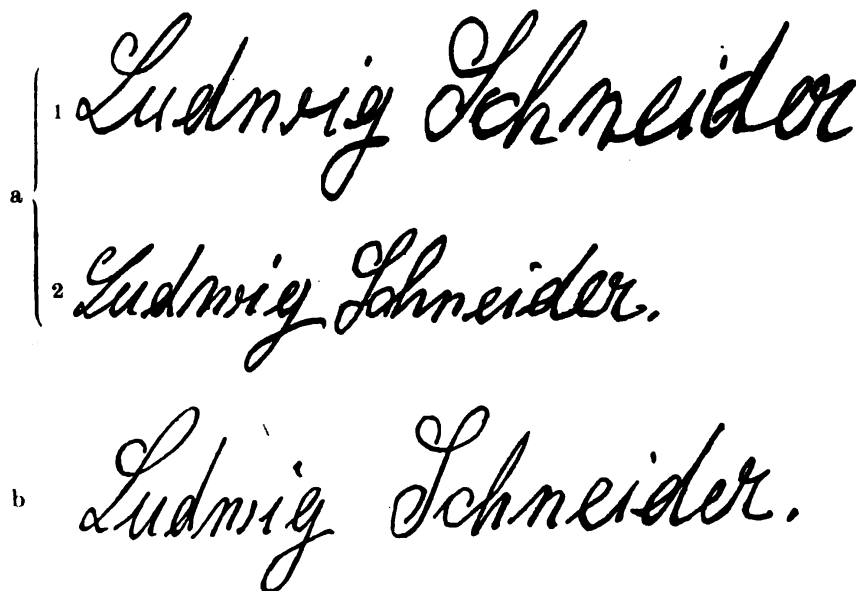 a
1 Ludwig Schneider
2 Ludwig Schneider.
b Ludwig Schneider.